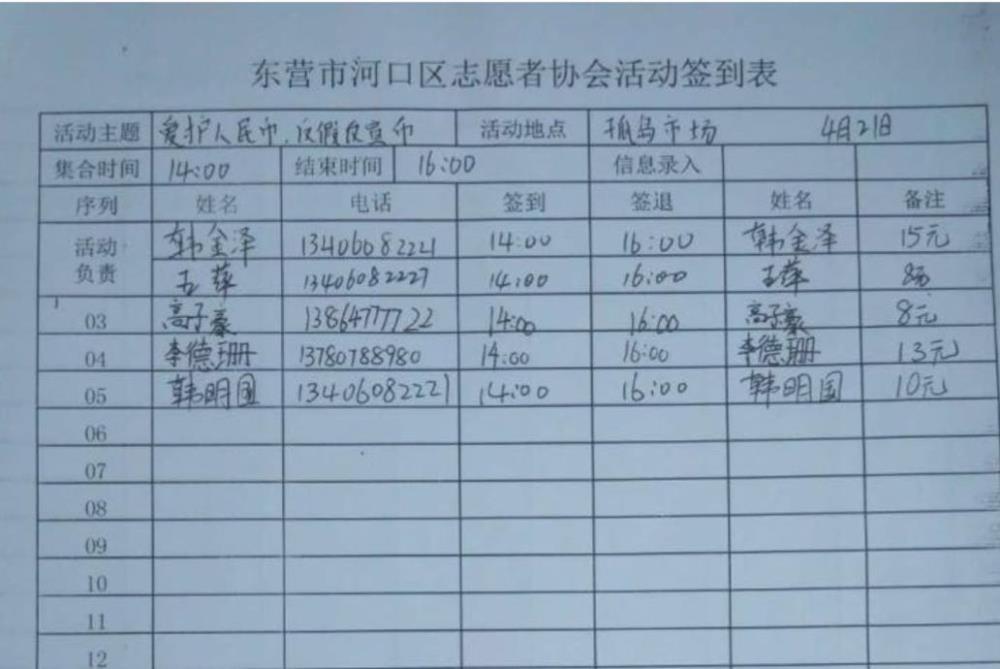 东营市河口区志愿者协会活动签到表
活动主题 爱护人民币,反假反宣币 活动地点 孤岛市场 4月21日
集合时间 14:00 结束时间 16:00 信息录入
序列 姓名 电话 签到 签退 姓名 备注
活动负责 韩金泽 13406082221 14:00 16:00 韩金泽 15元
萍 13406082227 14:00 16:00 萍
03 高子豪 13864777722 14:00 16:00 高子豪 8元
04 李德珊 13780788980 14:00 16:00 李德珊 13元
05 韩明国 13406082221 14:00 16:00 韩明国 10元
06
07
08
09
10
11
12